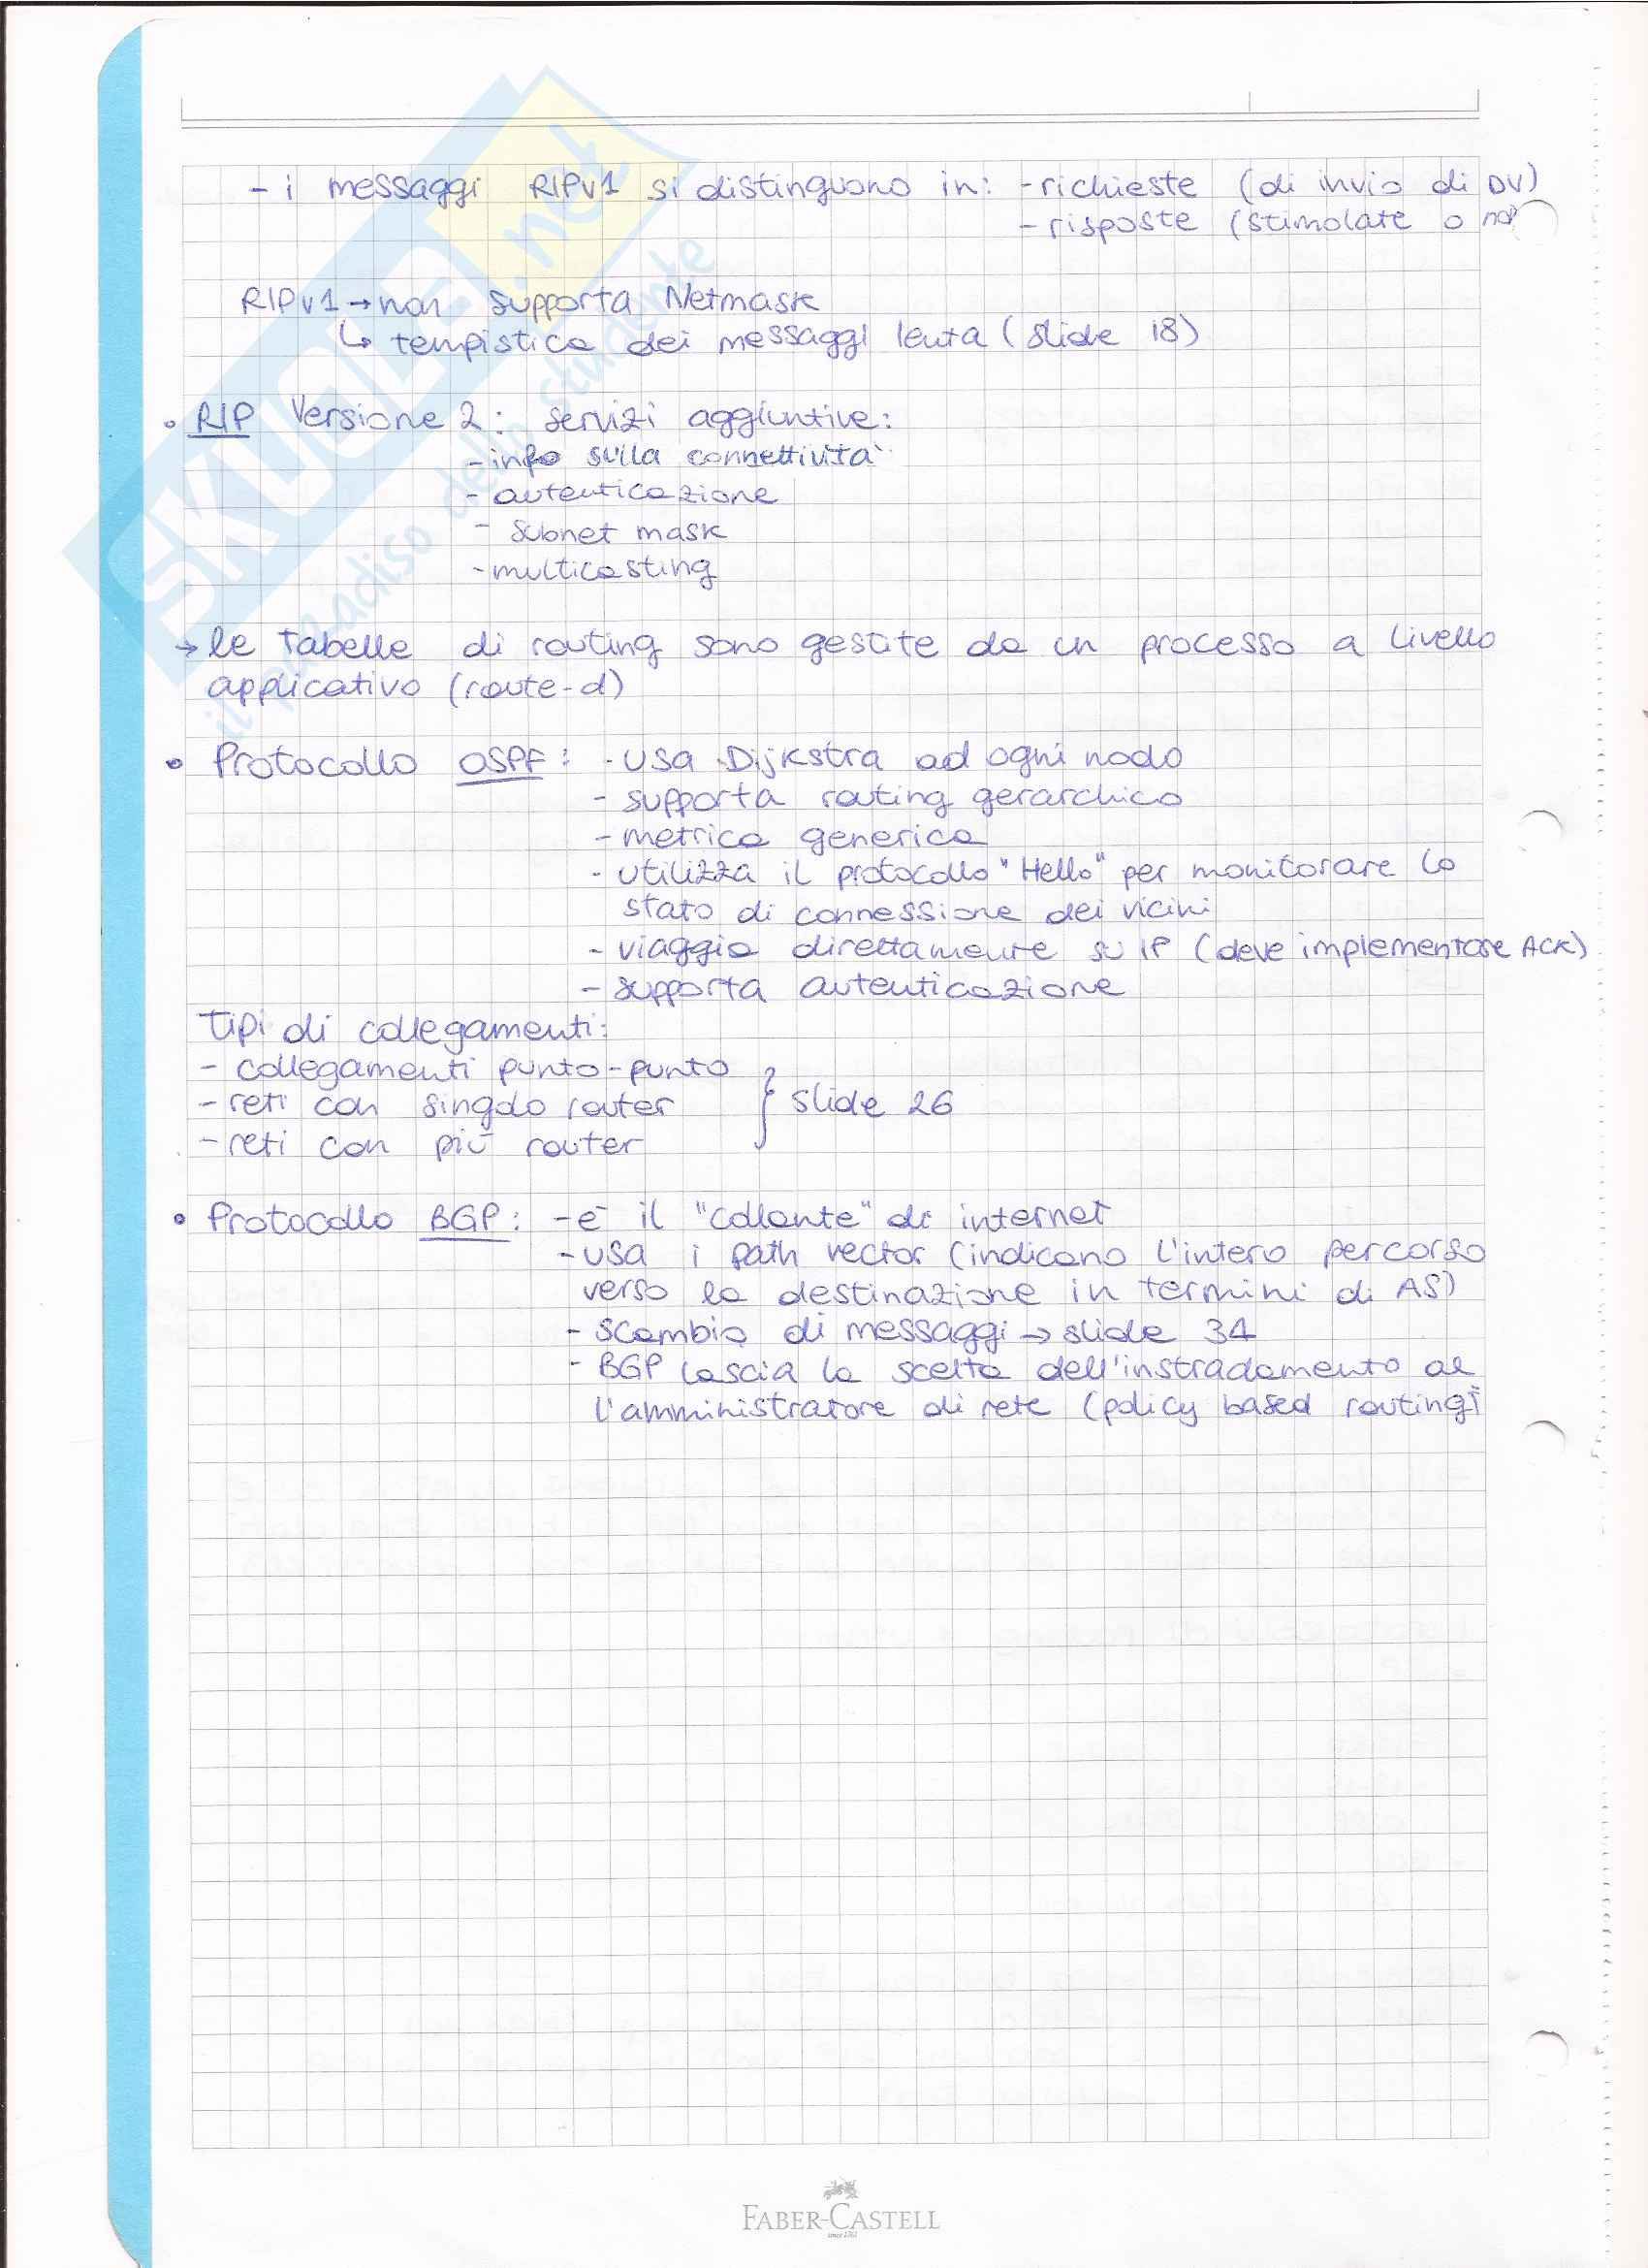 - i messaggi RIPv1 si distinguono in: - richieste (di invio di DV)
- risposte (stimolate o no)
RIPv1 → non supporta Netmask
↳ tempistica dei messaggi lenta (slide 18)
• RIP Versione 2: servizi aggiuntive:
- info sulla connettività
- autenticazione
- subnet mask
- multicasting
→ le tabelle di routing sono gestite da un processo a livello
applicativo (route-d)
• Protocollo OSPF: - usa Dijkstra ad ogni nodo
- supporta routing gerarchico
- metrica generica
- utilizza il protocollo "Hello" per monitorare lo
stato di connessione dei vicini
- viaggia direttamente su IP (deve implementare ACK)
- supporta autenticazione
Tipi di collegamenti:
- collegamenti punto-punto
- reti con singolo router } slide 26
- reti con più router
• Protocollo BGP: - è il "collante" di internet
- usa i path vector (indicano l'intero percorso
verso la destinazione in termini di AS)
- scambio di messaggi → slide 34
- BGP lascia la scelta dell'instradamento al
l'amministratore di rete (policy based routing)
SKUOLA.net
il paradiso dello studente
FABER-CASTELL
since 1761